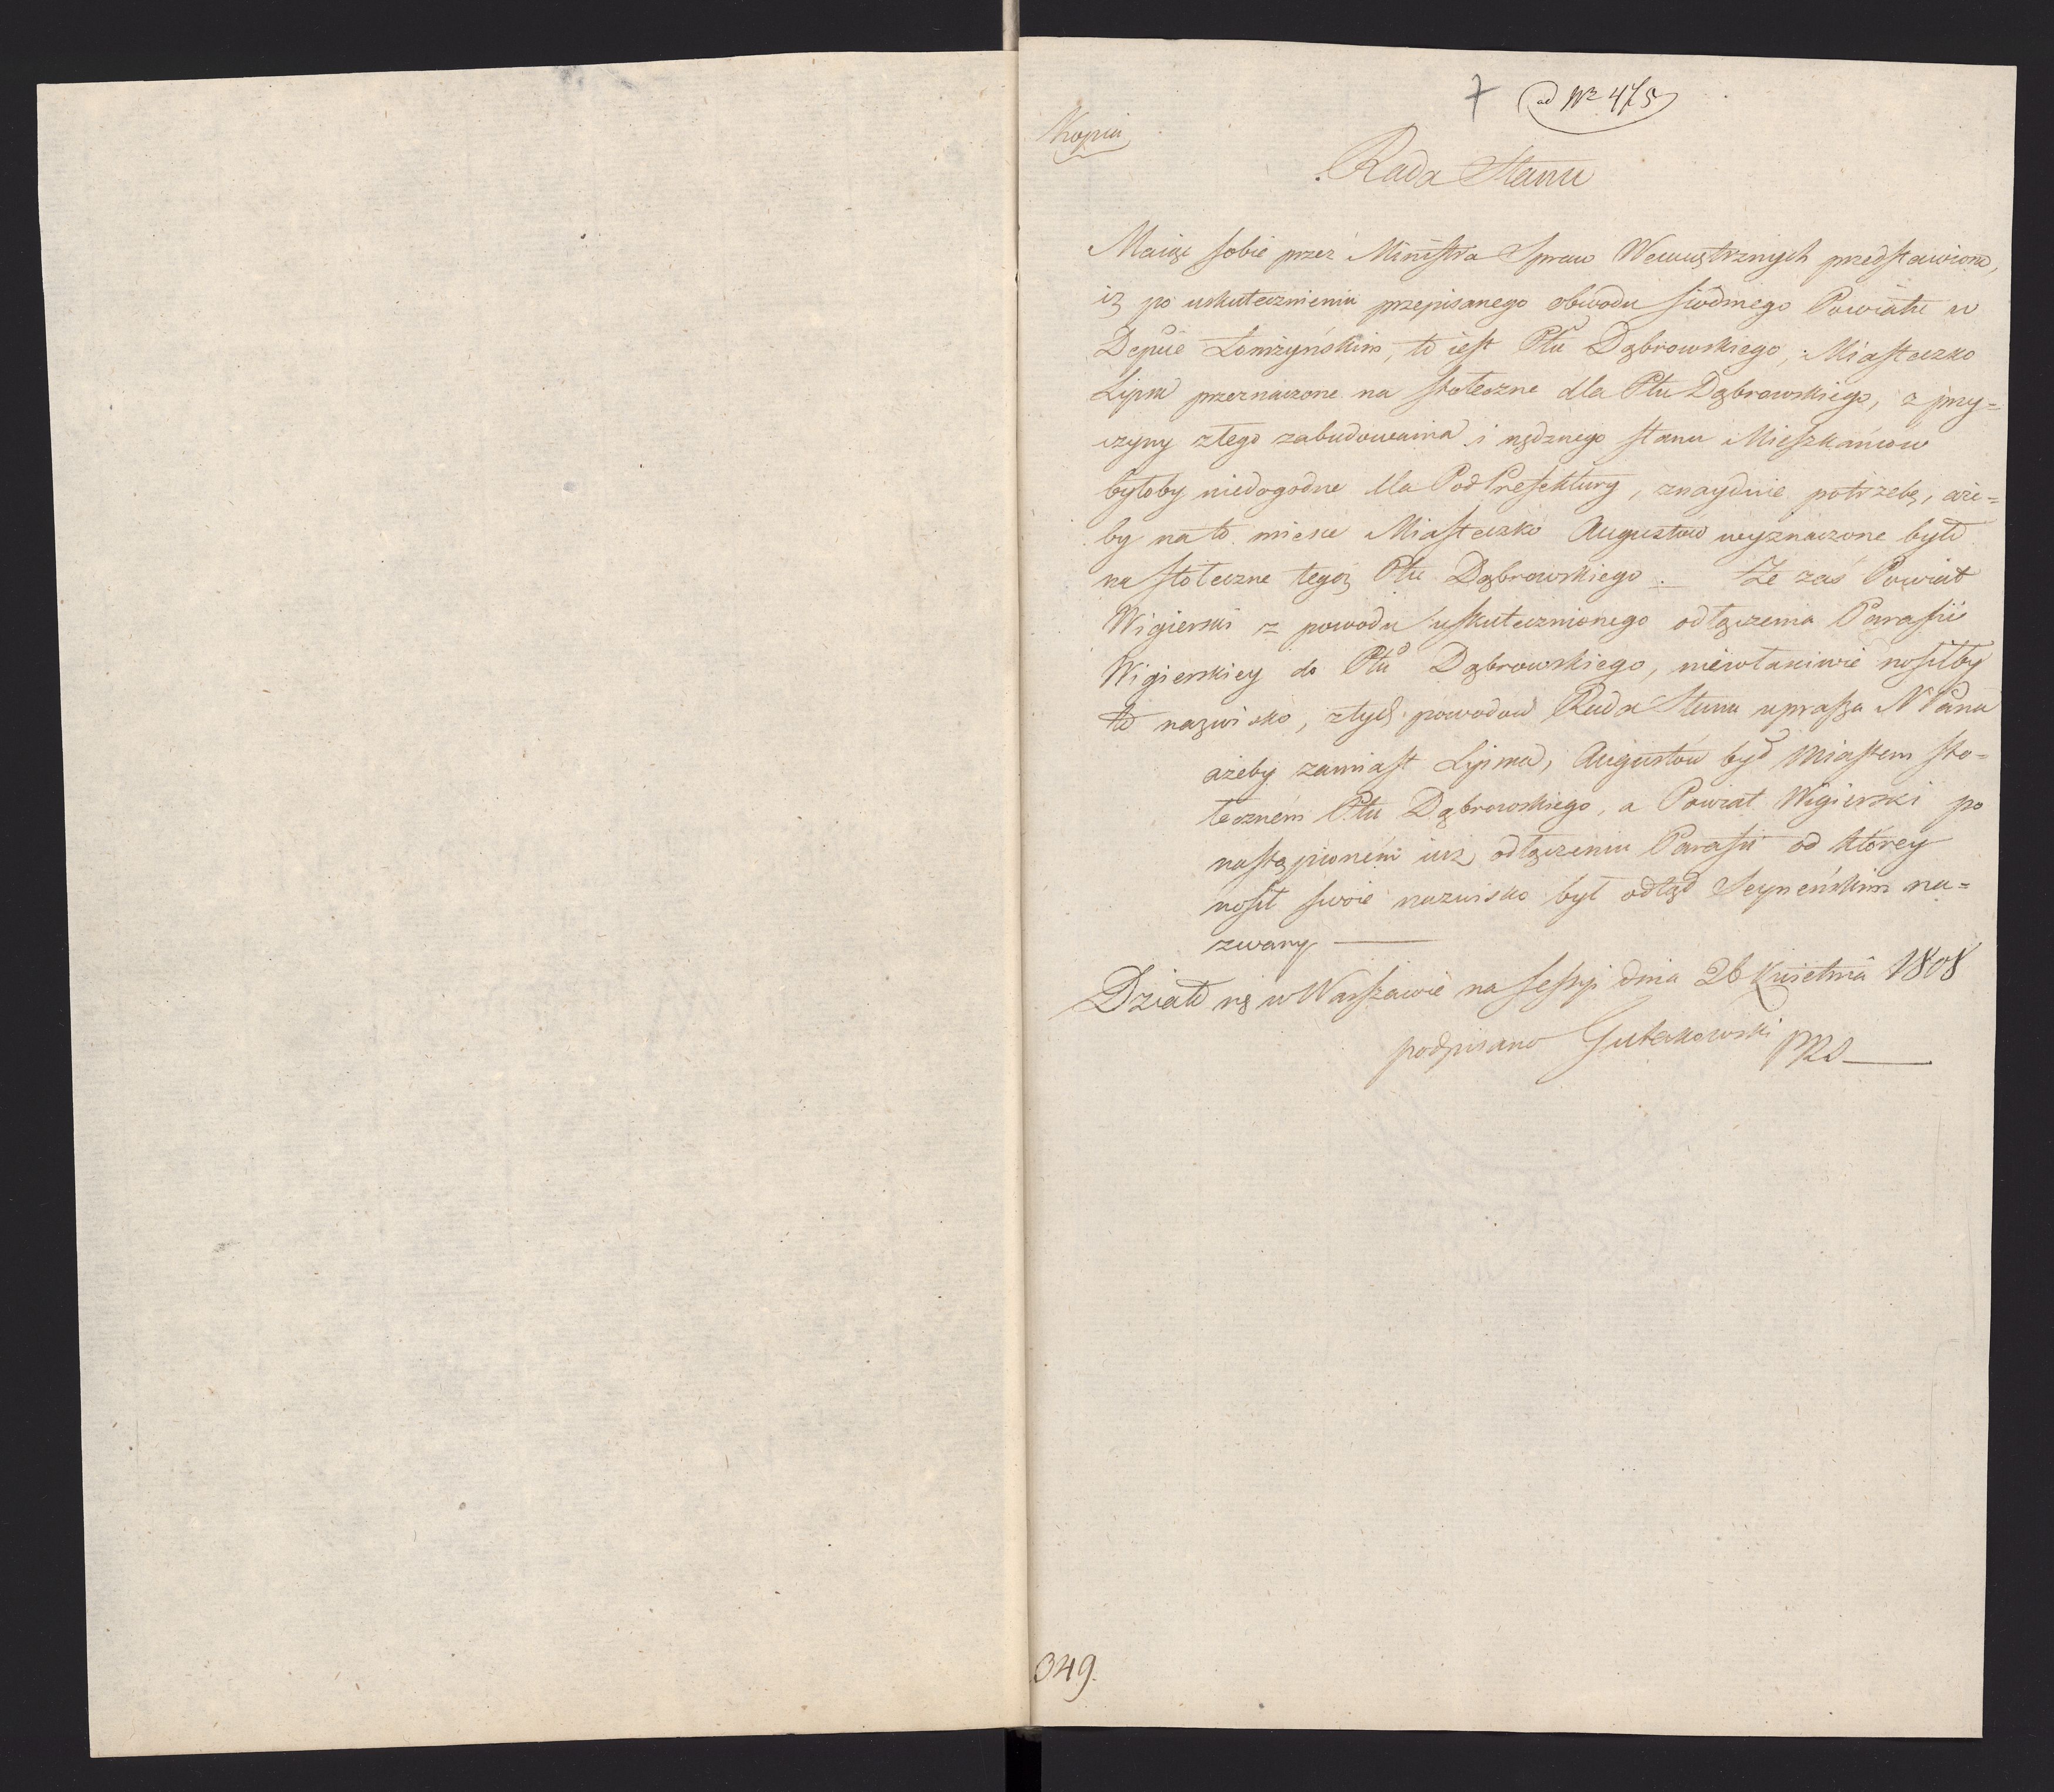 7 ad Nro 475
Kopia
Rada Stanu
Maiąc sobie przez Ministra Spraw Wewnętrznych przedstawione,
iż po uskutecznieniu przepisanego obwodu siódmego Powiatu w
Depcie Łomżyńskim, to iest Ptu Dąbrowskiego, Miasteczko
Lipsk przeznaczone na stołeczne dla Ptu Dąbrowskiego, z przy=
czyny złego zabudowania i nędznego stanu Mieszkańcow
byłoby niedogodne dla PodPrefektury, znayduie potrzebę, aże=
by na to miesce Miasteczko Augustów wyznaczone było
na stołeczne tegoż Ptu Dąbrowskiego. — Że zaś Powiat
Wigierski z powodu uskutecznionego odłączenia Parafii
Wigierskiey do Ptu Dąbrowskiego, niewłaściwie nosiłby
to nazwisko, z tych powodow Rada Stanu uprasza N Pana
ażeby zamiast Lipska, Augustów był Miastem sto=
łecznem Ptu Dąbrowskiego, a Powiat Wigierski po
nastąpionem iuż odłączeniu Parafii od którey
nosił swoie nazwisko był odtąd Seyneńskim na=
zwany —
Działo się w Warszawie na Sessyi dnia 26 Kwietnia 1808
podpisano Gutakowski PRS —
349.